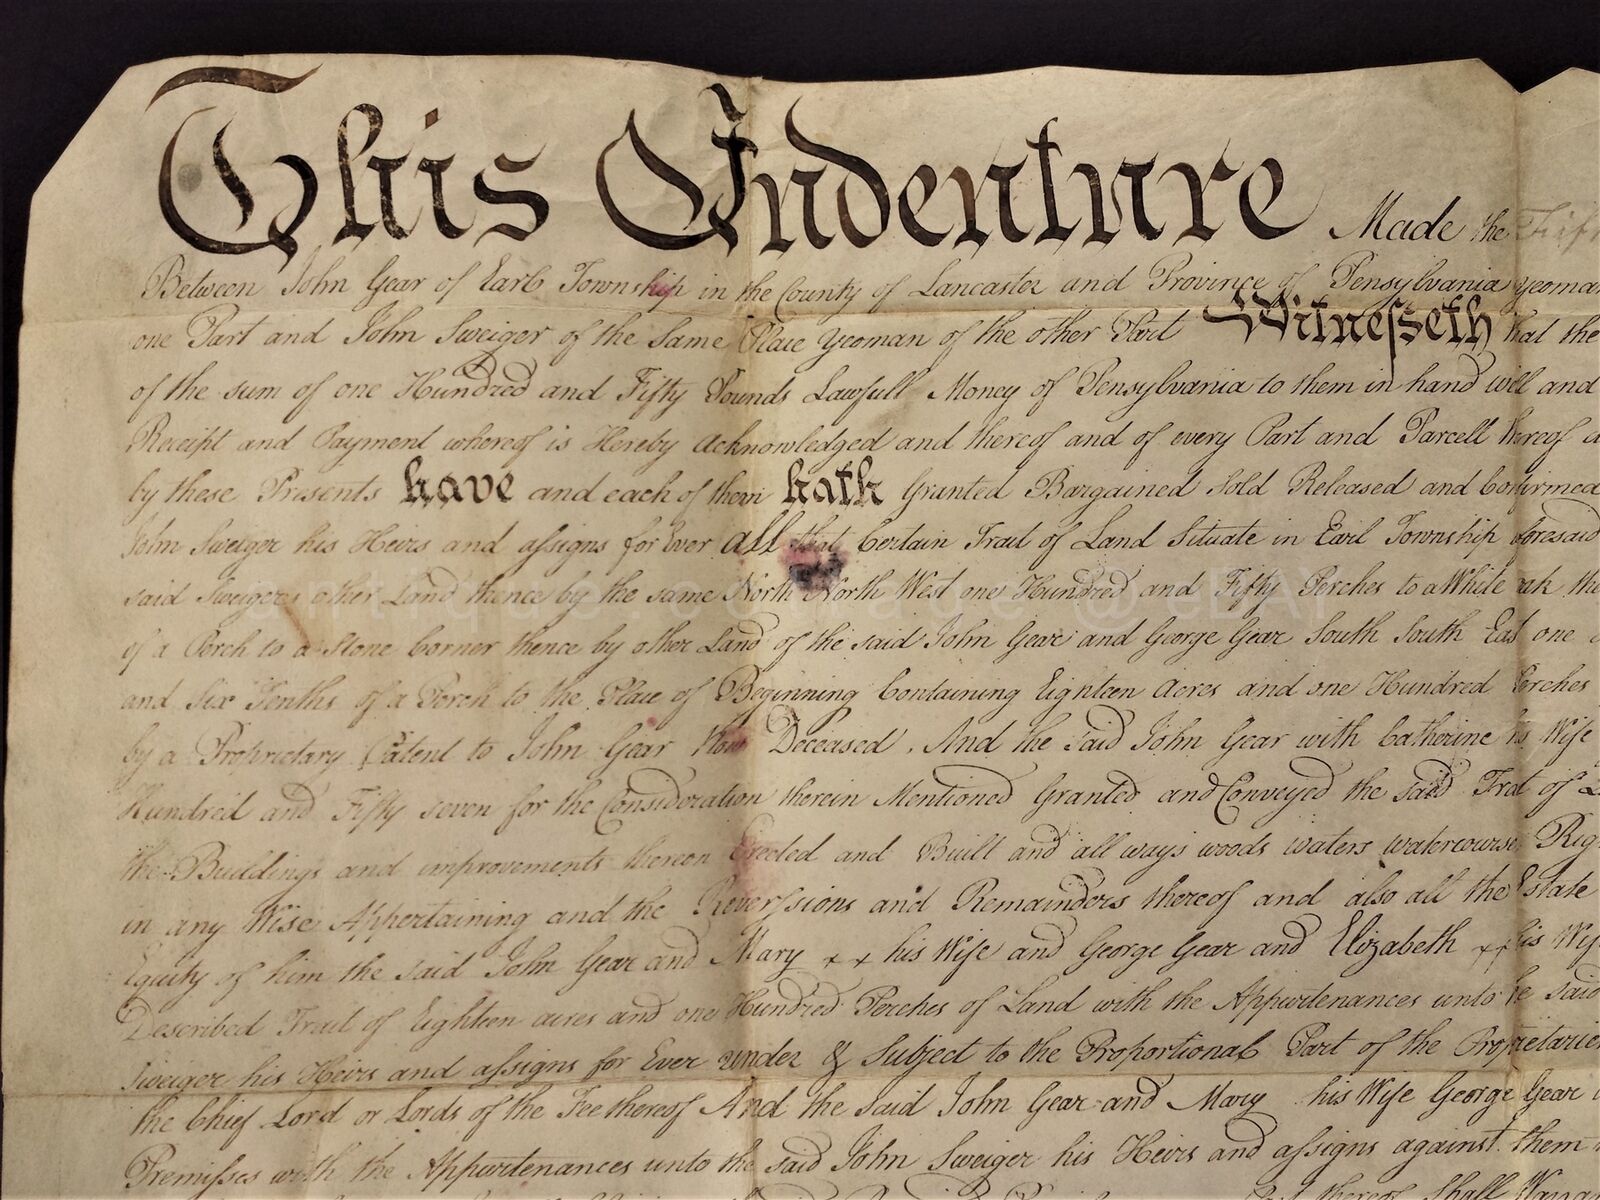 This Indenture Made the Fift
Between John Gear of Earl Township in the County of Lancaster and Province of Pensylvania yeoman
one Part and John Sweiger of the Same Place Yeoman of the other Part Witnesseth that the
of the sum of one Hundred and Fifty Pounds Lawfull Money of Pensylvania to them in hand well and
Receipt and Payment whereof is Hereby Acknowledged and thereof and of every Part and Parcell thereof
by these Presents have and each of them hath Granted Bargained Sold Released and Confirmed
John Sweiger his Heirs and assigns for Ever all that Certain Tract of Land Situate in Earl Township
said Sweigers other Land thence by the same North North West one Hundred and Fifty Perches to a White the
of a Perch to a Stone Corner thence by other Land of the said John Gear and George Gear South South East one
and Six Tenths of a Perch to the Place of Beginning Containing Eighteen Acres and one Hundred Perches
by a Proprietary Patent to John Gear Now Deceased. And the Said John Gear with Catherine his Wife
Hundred and Fifty seven for the Consideration therein Mentioned Granted and Conveyed the Said Trat of
the Buildings and improvements thereon Erected and Built and all ways woods waters watercourses
in any Wise Appertaining and the Reverssions and Remainders thereof and also all the Estate
Equity of him the said John Gear and Mary x x his Wife and George Gear and Elizabeth x x his
Described Tract of Eighteen acres and one Hundred Perches of Land with the Appurtenances unto said
Sweiger his Heirs and assigns for Ever under & Subject to the Proportional Part of the
the Chief Lord or Lords of the Fee thereof And the Said John Gear and Mary his Wife George Gear
Premisses with the Appurtenances unto the said John Sweiger his Heirs and assigns against them
thereof Shall